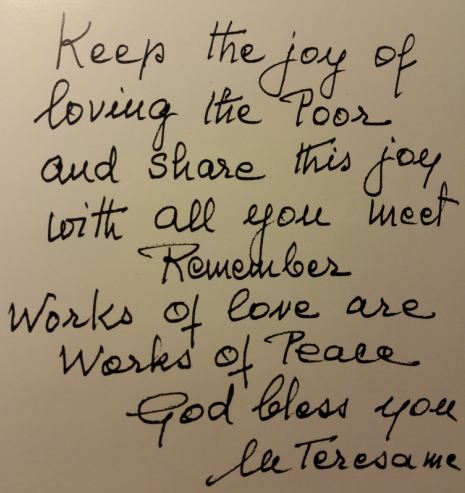 Keep the joy of
loving the Poor
and share this joy
with all you meet
Remember
Works of love are
Works of Peace
God bless you
lu Teresa mc